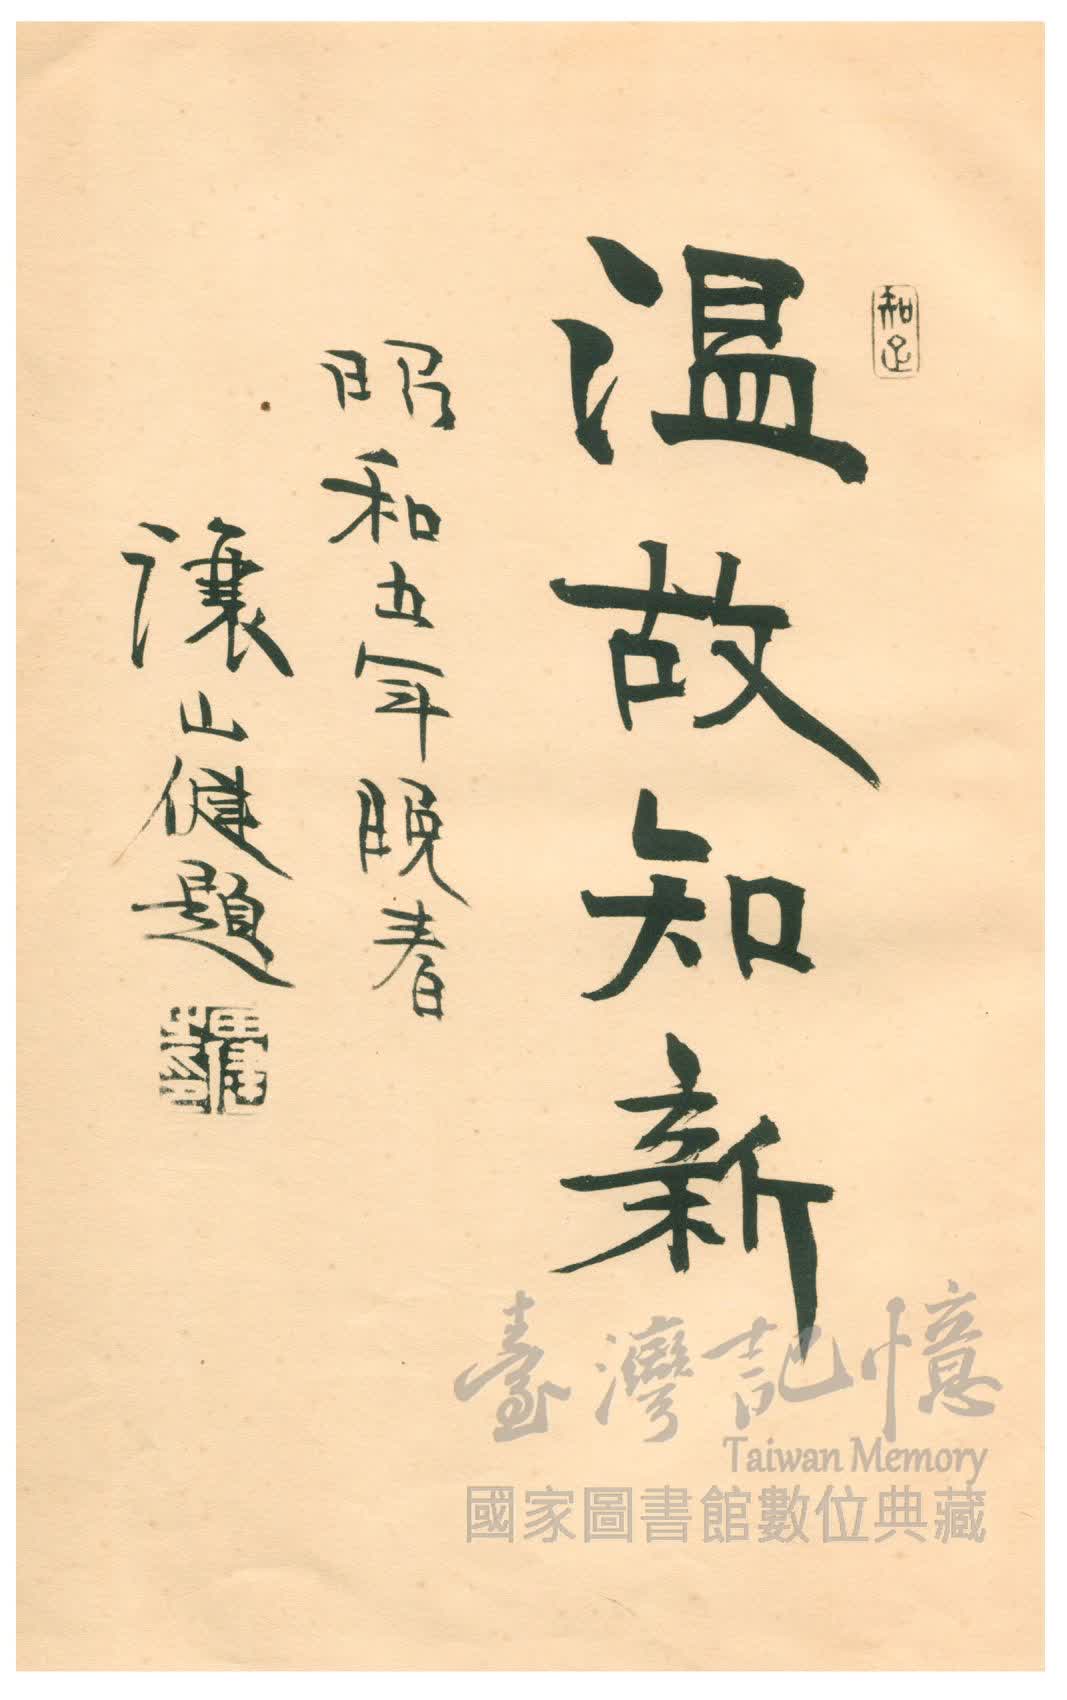 知足
温故知新
昭和五年晚春
讓山健題
臺灣記憶
Taiwan Memory
國家圖書館數位典藏